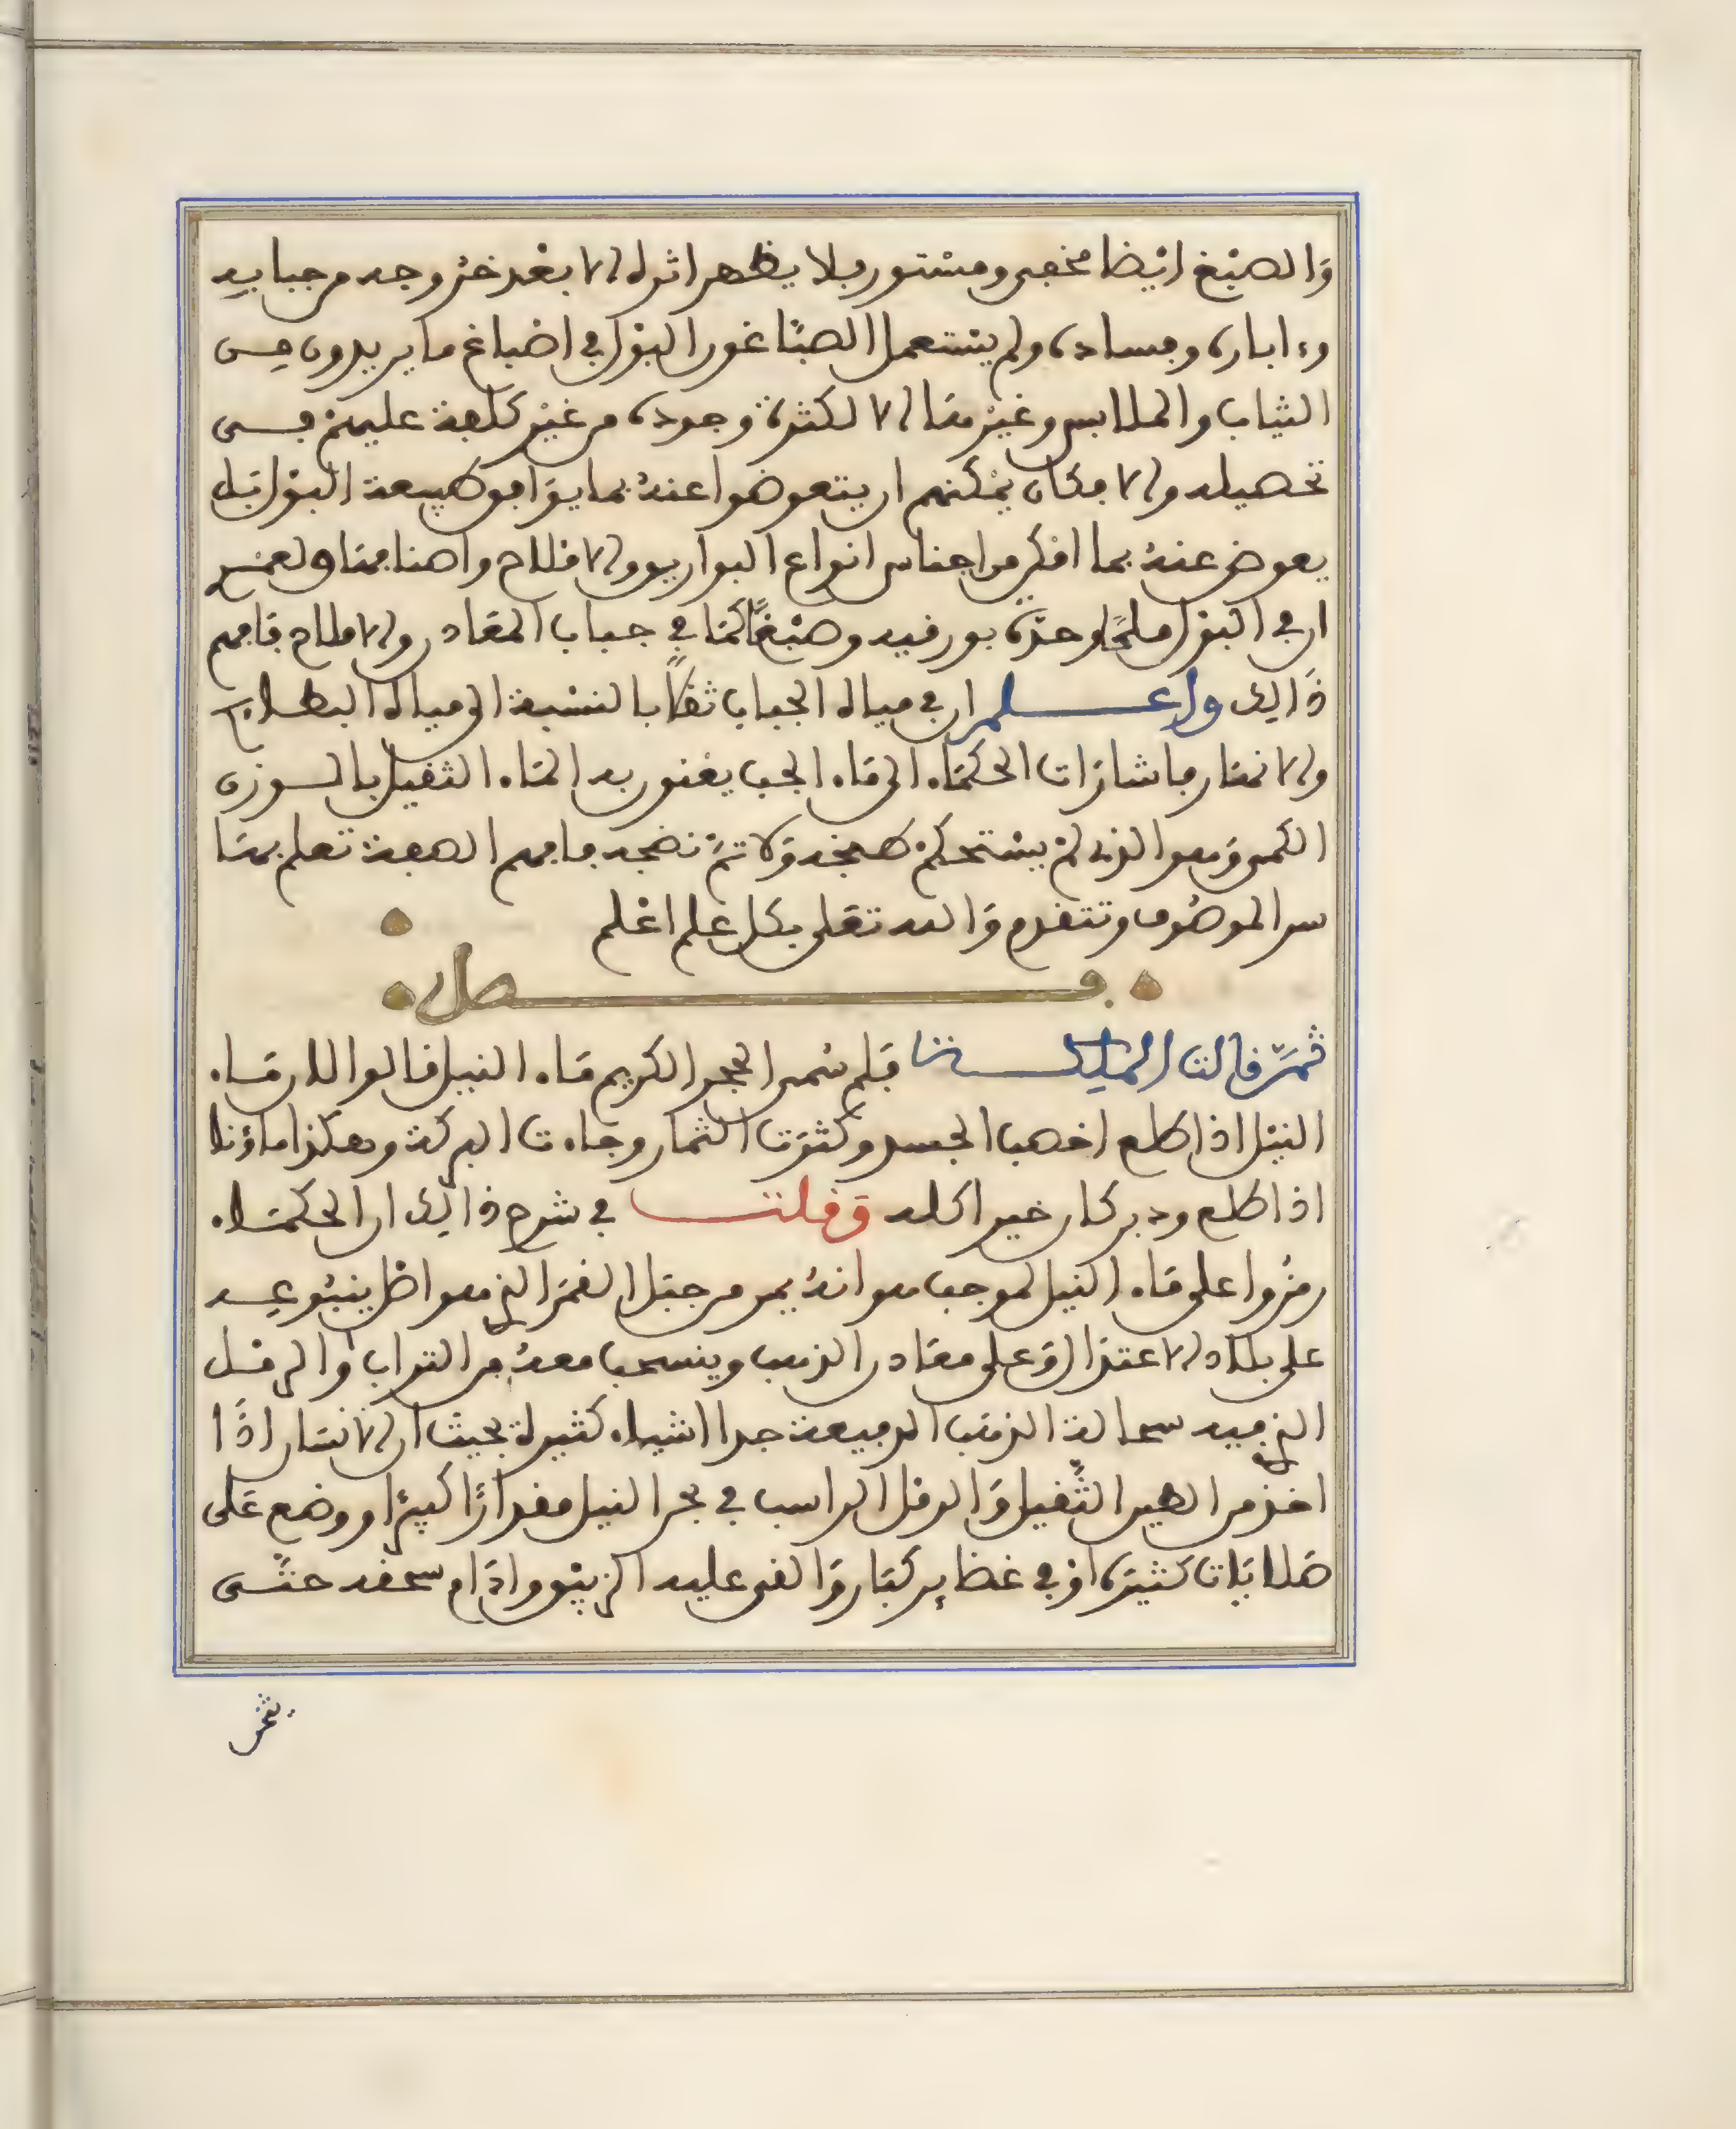 والصبغ ايضا مخفى ومستور فلا يظهر اثره الا بعد خروجه من جبابه
وءاباره وفساده ولم يستعمل الصباغون البول في اصباغ ما يريدون من
الثياب والملابس وغيرها الا لكثرة وجوده من غير كلفة عليهم في
تحصيله والا فكان يمكنهم ان يتعوضوا عنه بما يوافق طبيعة البول بل
يعوض عنه بما امكن من اجناس انواع البوارق والاملاح واصنافها
ان في البول ملحا وحدة بورقية وصبغا كما في جباب المعادن والاملاح فافهم
ذالك واعلم ان في مياه الجباب ثقلا بالنسبة الى مياه البطاح
والانهار فاشارات الحكماء الى ماء الجب يعنون به الماء الثقيل بالوزن
الكمى وهو الذى لم يستحكم طبخه ولا تم نضجه فافهم الصفة تعلم بها
سر الموصوف وتتقدم والله تعلى بكل علم اعلم
فصل
ثم قالت الملكة فلم سمى الحجر الكريم ماء النيل قالوا لان ماء
النيل اذا طلع اخصب الجسد وكثرت الثمار وجاءت البركة وهكذا ماؤنا
اذا طلع ودبر كان خيرا كله وقلت في شرح ذالك ان الحكماء
رمزوا على ماء النيل لموجب هو انه يمر من جبل القمر الذي هو اصل ينبوعه
على بلاد الاعتدال وعلى معادن الذهب وينسحب معه من التراب والرمل
الذي فيه سحالة الذهب الرفيعة جدا اشياء كثيرة بحيث ان الانسان اذا
اخذ من الطين الثقيل والرمل الراسب في بحر النيل مقدارا كبيرا ووضع على
صلايات كثيرة او في غضاير كبار والقى عليه الزيبق وادام سحقه حتى